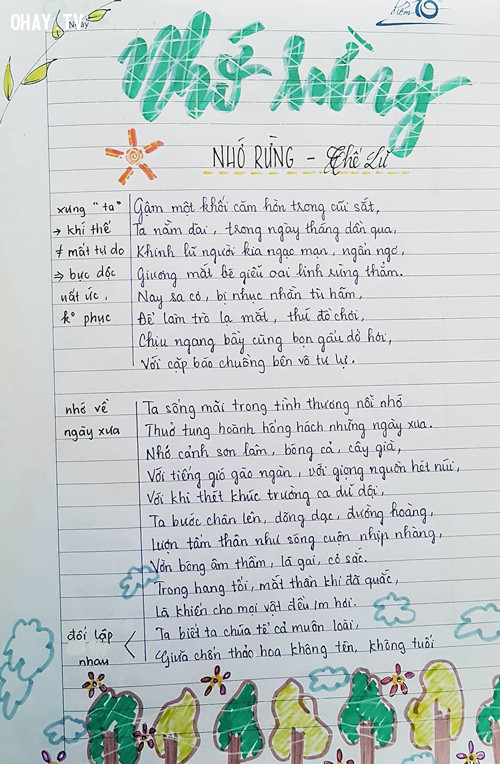 OHAY TV
Ngày
điểm 10
Nhớ rừng
NHỚ RỪNG - Thế Lữ
xưng "ta"
→ khí thế
≠ mất tự do
⇒ bực dọc
uất ức,
k° phục
Gậm một khối căm hờn trong cũi sắt,
Ta nằm dài, trong ngày tháng dần qua,
Khinh lũ người kia ngạo mạn, ngẩn ngơ,
Giương mắt bé giễu oai linh rừng thẳm.
Nay sa cơ, bị nhục nhằn tù hãm,
Để làm trò lạ mắt, thứ đồ chơi,
Chịu ngang bầy cùng bọn gấu dở hơi,
Với cặp báo chuồng bên vô tư lự.
nhớ về
ngày xưa
Ta sống mãi trong tình thương nỗi nhớ
Thuở tung hoành hống hách những ngày xưa.
Nhớ cảnh sơn lâm, bóng cả, cây già,
Với tiếng gió gào ngàn, với giọng nguồn hét núi,
Với khi thét khúc trường ca dữ dội,
Ta bước chân lên, dõng dạc, đường hoàng,
Lượn tấm thân như sóng cuộn nhịp nhàng,
Vờn bóng âm thầm, lá gai, cỏ sắc.
Trong hang tối, mắt thần khi đã quắc,
Là khiến cho mọi vật đều im hơi.
đối lập
nhau
Ta biết ta chúa tể cả muôn loài,
Giữa chốn thảo hoa không tên, không tuổi
OHAY TV